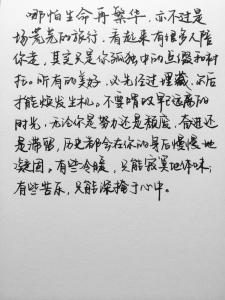 哪怕生命再繁华，亦不过是
一场荒芜的旅行，看起来有很多人陪
你走，其实只是你孤独中的点缀和衬
托。所有的美好，必先经过埋藏，尔后
才能焕发生机。不要喟叹牢远腐朽的
时光，无论你是努力还是颓废，奋进还
是滞留，历史都会在你的身后慢慢地
凝固。有些冷暖，只能寂寞地体味；
有些苦乐，只能深掩于心中。